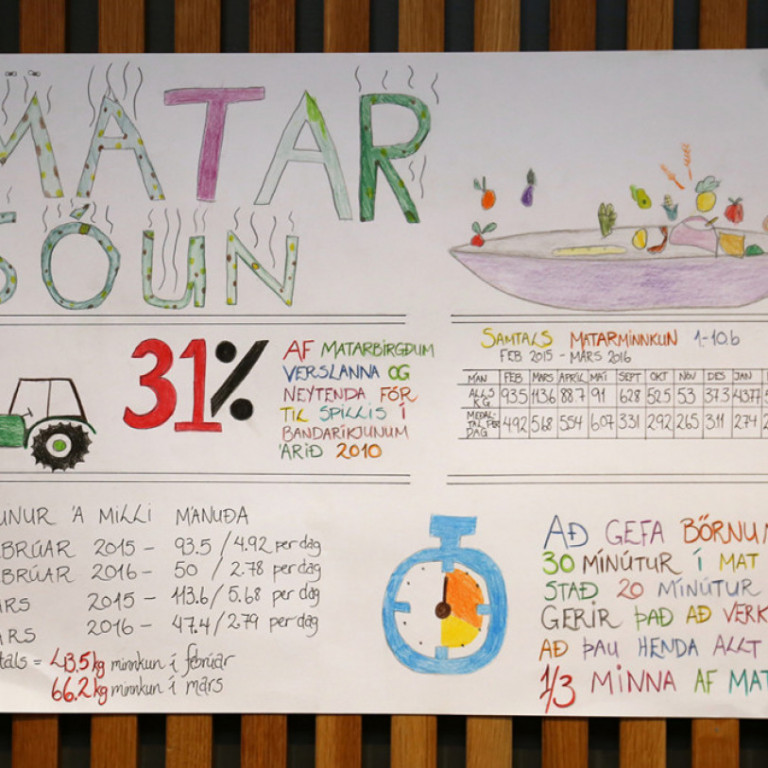 MATAR
SOUN
31%
AF MATARBIRGÐUM
VERSLANNA OG
NEYTENDA FÓR
TIL SPILLIS Í
BANDARÍKJUNUM
ÁRIÐ 2010
SAMTALS MATARMINNKUN 1-10.b
FEB 2015 - MARS 2016
MAN FEB MARS APRÍL MAÍ SEPT OKT NOV DES JAN
ALLS KG 93.5 113.6 88.7 91 62.8 52.5 53 37.3 43.77
MEÐALTAL PER DAG 4.92 5.68 5.54 6.07 3.31 2.92 2.65 3.11 2.74
UNUR Á MILLI MÁNUÐA
BRÚAR 2015 - 93.5 / 4.92 per dag
BRÚAR 2016 - 50 / 2.78 per dag
ARS 2015 - 113.6 / 5.68 per dag
ARS 2016 - 47.4 / 2.79 per dag
tals = 43.5 kg minnkun í febrúar
66.2 kg minnkun í mars
AÐ GEFA BÖRNUM
30 MÍNÚTUR Í MAT
STAÐ 20 MÍNÚTUR
GERIR ÞAÐ AÐ VERK
AÐ ÞAU HENDA ALLT
1/3 MINNA AF MAT